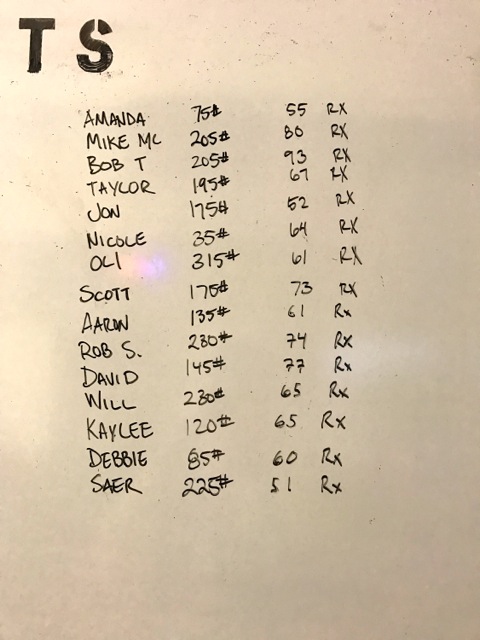 TS
AMANDA 75# 55 RX
MIKE MC 205# 80 RX
BOB T 205# 93 RX
TAYLOR 195# 67 RX
JON 175# 52 RX
NICOLE 35# 64 RX
OLI 315# 61 RX
SCOTT 175# 73 RX
AARON 135# 61 Rx
ROB S. 230# 74 Rx
DAVID 145# 77 Rx
WILL 230# 65 Rx
KAYLEE 120# 65 Rx
DEBBIE 85# 60 Rx
SAER 225# 51 Rx